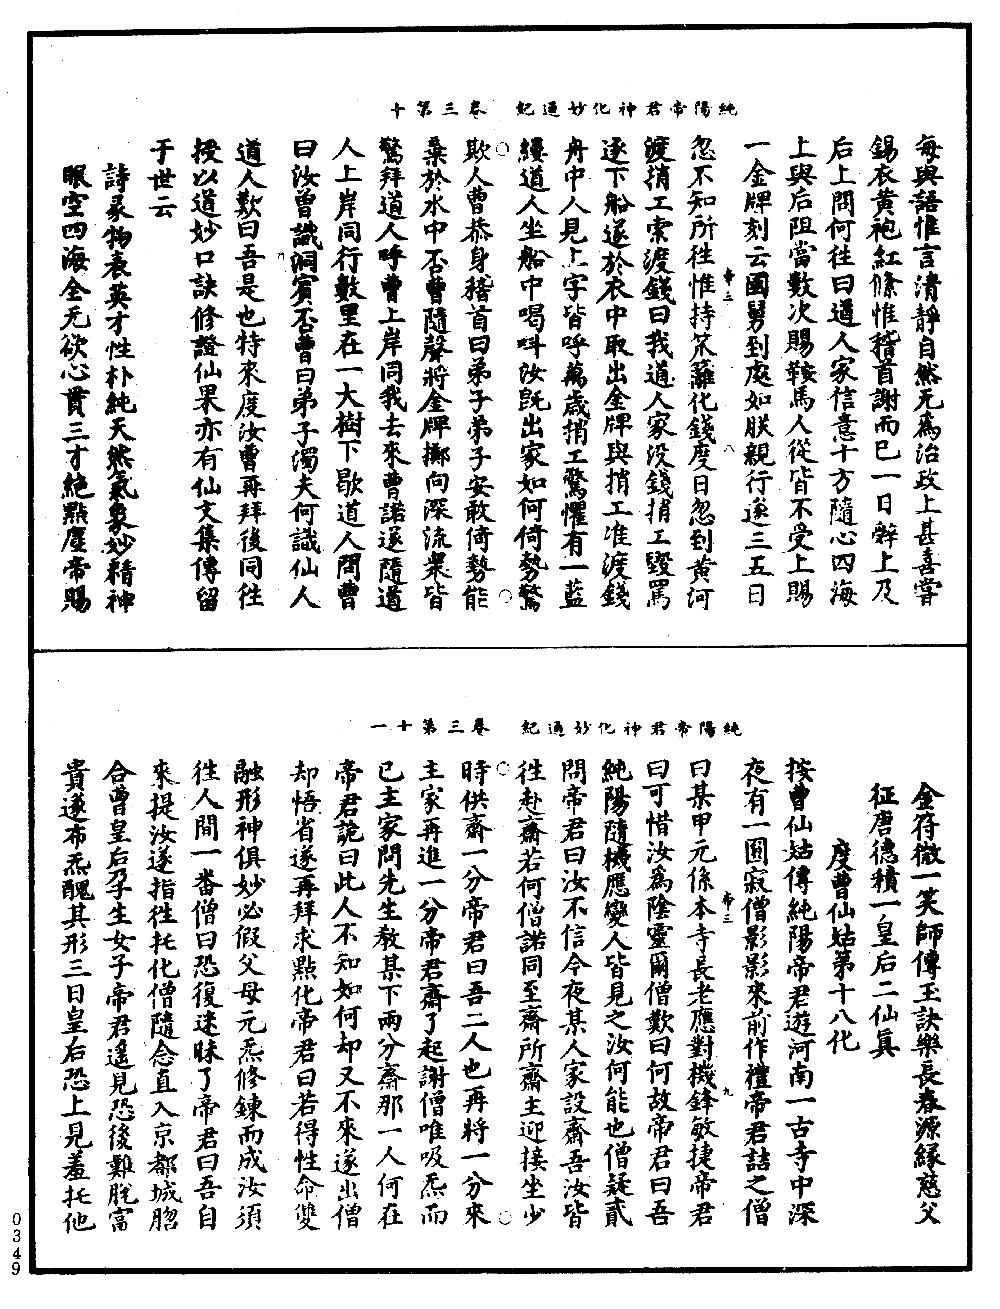 純陽帝君神化妙通紀　卷三第十
每與語惟言清靜自然无為治政上甚喜嘗
錫衣黃袍紅絛惟稽首謝而已一日辭上及
后上問何往曰道人家信意十方隨心四海
上與后阻當數次賜鞍馬人從皆不受上賜
一金牌刻云國舅到處如朕親行遂三五日
忽不知所往惟持笊籬化錢度日忽到黃河
渡捎工索渡錢曰我道人家沒錢捎工毀罵
逐下船遂於衣中取出金牌與捎工准渡錢
舟中人見上字皆呼萬歲捎工驚懼有一藍
縷道人坐船中喝叫汝旣出家如何倚勢驚
欺人曹恭身稽首曰弟子弟子安敢倚勢能
棄於水中否曹隨聲將金牌擲向深流衆皆
驚拜道人呼曹上岸同我去來曹諾遂隨道
人上岸同行數里在一大樹下歇道人問曹
曰汝曾識洞賓否曹曰弟子濁夫何識仙人
道人歎曰吾是也特來度汝曹再拜後同往
授以道妙口訣修證仙果亦有仙文集傳留
于世云
詩彔物表英才性朴純天然氣象妙精神
眼空四海全无欲心貫三才絕點塵帝賜
帝三
八
純陽帝君神化妙通紀　卷三第十一
金符微一笑師傳玉訣樂長春源緣慈父
征唐德積一皇后二仙眞
度曹仙姑第十八化
按曹仙姑傳純陽帝君遊河南一古寺中深
夜有一圓寂僧影影來前作禮帝君詰之僧
曰某甲元係本寺長老應對機鋒敏捷帝君
曰可惜汝為陰靈爾僧歎曰何故帝君曰吾
純陽隨機應變人皆見之汝何能也僧疑貳
問帝君曰汝不信今夜某人家設齋吾汝皆
往赴齋若何僧諾同至齋所齋主迎接坐少
時供齋一分帝君曰吾二人也再將一分來
主家再進一分帝君齋了起謝僧唯吸炁而
已主家問先生敎某下兩分齋那一人何在
帝君詭曰此人不知如何却又不來遂出僧
却悟省遂再拜求點化帝君曰若得性命雙
融形神俱妙必假父母元炁修鍊而成汝須
往人間一番僧曰恐復迷昧了帝君曰吾自
來提汝遂指往托化僧隨念直入京都城䐇
合曹皇后乃孕生女子帝君遙見恐後難脫富
貴遂布炁醜其形三日皇后恐上見羞托他
帝三
九
0349